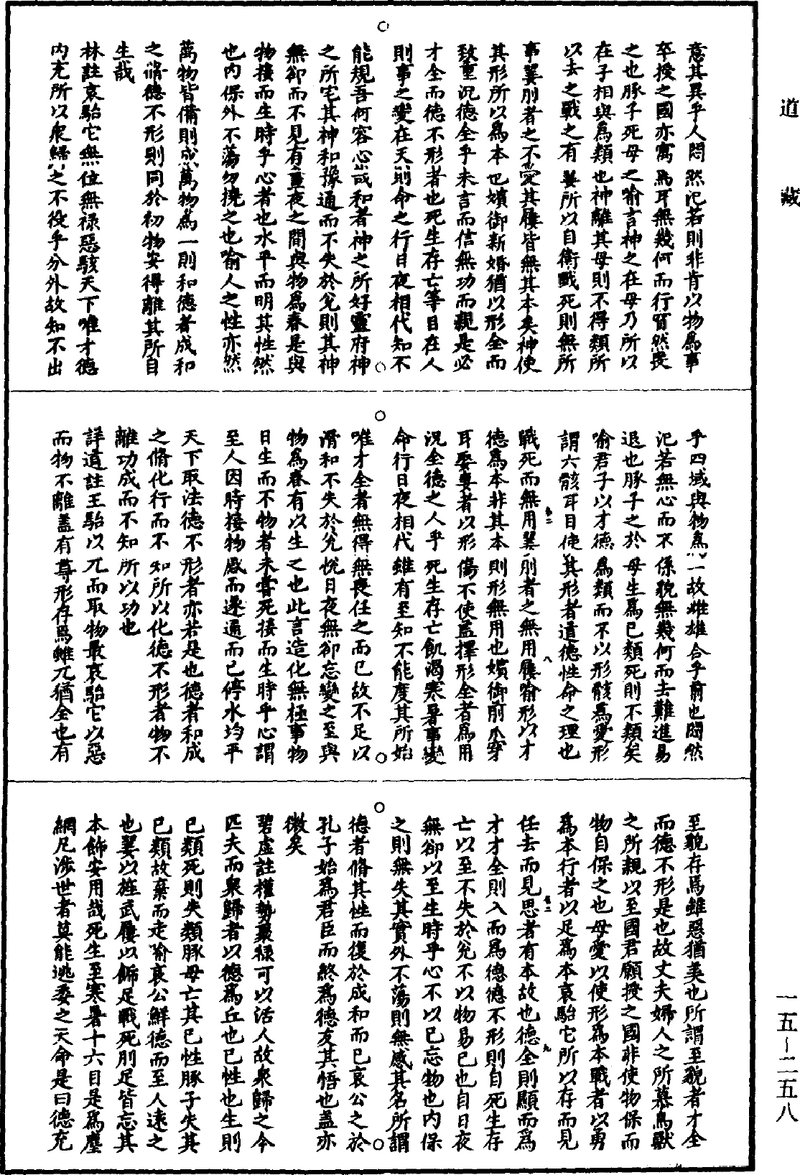 道藏
意其異乎人悶然氾若則非肯以物爲事
卒授之國亦寓焉耳無幾何而行買然喪
之也豚子死母之喻言神之在母乃所以
在子相與爲類也神離其母則不得類所
以去之戰之有翣所以自衛戰死則無所
事翣刖者之不愛其屨皆無其本矣神使
其形所以爲本也嬪御新婚猶以形全而
致重況德全乎未言而信無功而親是必
才全而德不形者也死生存亡等目在人
則事之變在天則命之行日夜相代知不
能規吾何容心哉和者神之所好靈府神
之所宅其神和豫通而不失於兌則其神
無郤而不見有晝夜之間與物爲春是與
物接而生時乎心者也水平而明其性然
也內保外不蕩勿撓之也喻人之性亦然
萬物皆備則成萬物爲一則和德者成和
之脩德不形則同於初物安得離其所自
生哉
林註哀駘它無位無祿惡駭天下唯才德
內充所以衆歸之不役乎分外故知不出
乎四域與物爲一故雌雄合乎前也悶然
氾若無心而不係貌無幾何而去難進易
退也豚子之於母生爲已類死則不類矣
喻君子以才德爲類而不以形骸爲愛形
謂六骸耳目使其形者道德性命之理也
戰死而無用翣刖者之無用屨喻形以才
德爲本非其本則形無用也嬪御前爪穿
耳娶妻者以形傷不使蓋擇形全者爲用
況全德之人乎死生存亡飢渴寒暑事變
命行日夜相代雖有至知不能度其所始
唯才全者無得無喪任之而已故不足以
滑和不失於兌悅日夜無郤忘變之至與
物爲春有以生之也此言造化無極事物
日生而不物者未嘗死接而生時乎心謂
至人因時接物感而遂通而已停水均平
天下取法德不形者亦若是也德者和成
之脩化行而不知所以化德不形者物不
離功成而不知所以功也
詳道註王駘以兀而取物最哀駘它以惡
而物不離蓋有尊形存焉雖兀猶全也有
至貌存焉雖惡猶美也所謂至貌者才全
而德不形是也故丈夫婦人之所慕鳥獸
之所親以至國君願授之國非使物保而
物自保之也母愛以使形爲本戰者以勇
爲本行者以足爲本哀駘它所以存而見
任去而見思者有本故也德全則顯而爲
才才全則入而爲德德不形則自死生存
亡以至不失於兌不以物易已也自日夜
無郤以至生時乎心不以已忘物也內保
之則無失其實外不蕩則無感其名所謂
德者脩其性而復於成和而已哀公之於
孔子始爲君臣而終爲德友其悟也蓋亦
微矣
碧虛註權勢聚祿可以活人故衆歸之今
匹夫而衆歸者以德爲丘也已性也生則
已類死則失類豚母亡其已性豚子失其
已類故棄而走喻哀公鮮德而至人遠之
也翣以旌武屨以飾足戰死刖足皆忘其
本飾安用哉死生至寒暑十六目是爲塵
網凡涉世者莫能逃委之天命是曰德充
一五~二五八